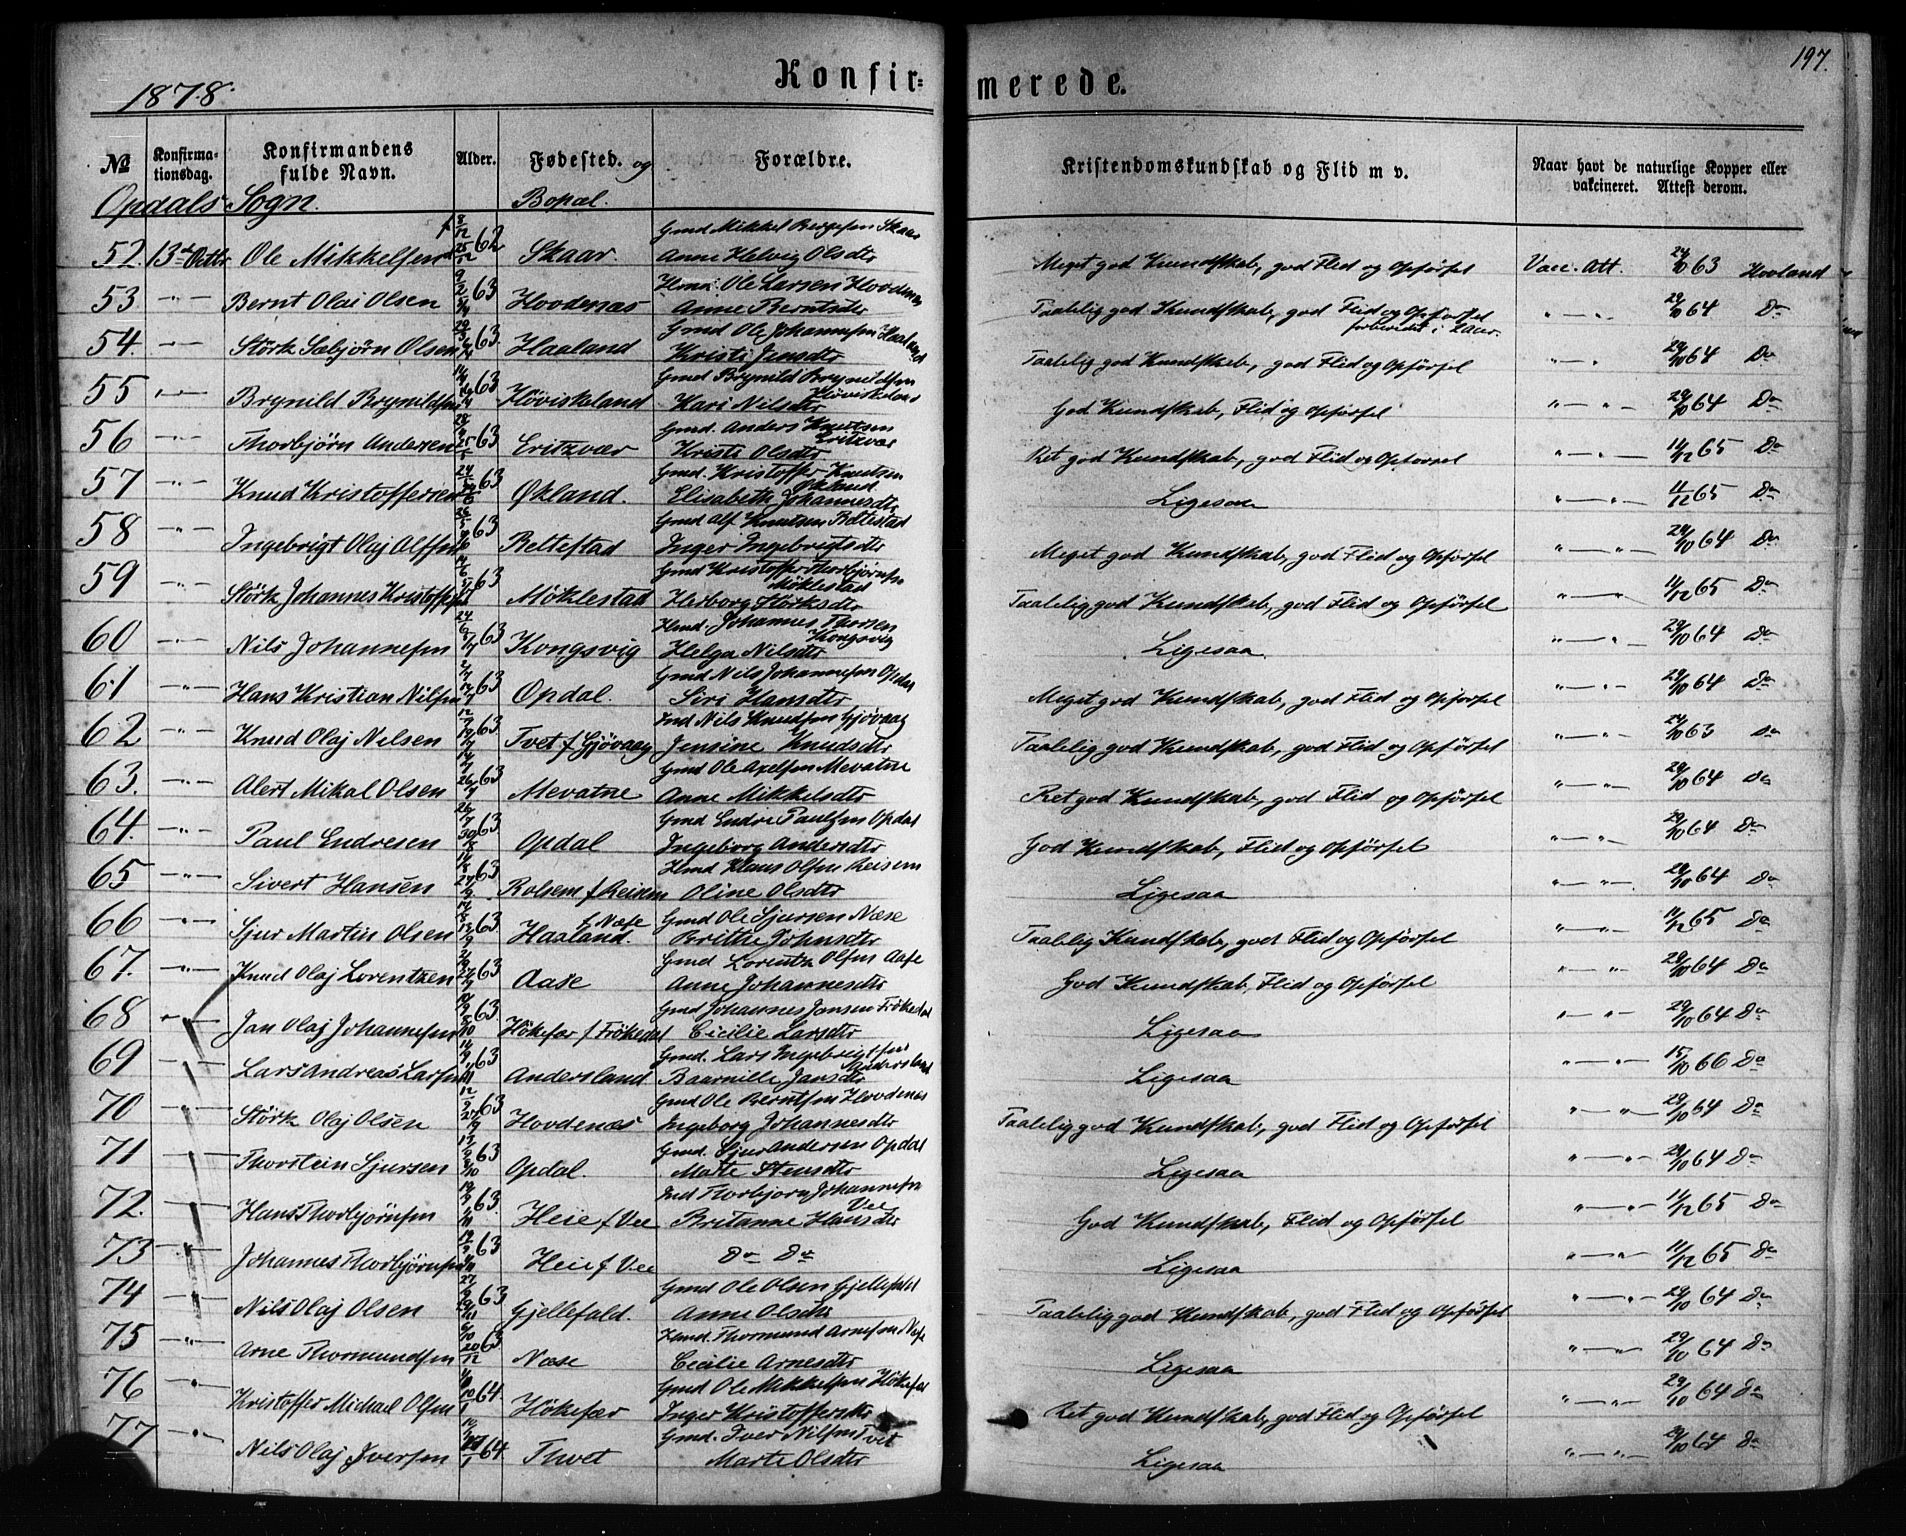 197.
1878.
Konfirmerede.
No
Konfirmationsdag.
Konfirmandens fulde Navn.
Alder.
Fødested. og
Forældre.
Kristendomskundskab og Flid m v.
Naar havt de naturlige Kopper eller vakcineret. Attest derom.
Opdals Sogn.
Bopæl.
52. 13de Octbr Ole Mikkelsen 62 Skaar. Gmd Mikkel Børgesen Skaar Anne Helvig Olsdtr Meget god Kundskab, god Flid og Opførsel Vacc. Att. 63 Hovland
53. Bernt Olai Olsen 63 Hovdenæs Ole Larsen Hovdenæs Anne Berntsdtr Taalelig god Kundskab, god Flid og Opførsel forberedet i 2 Aar. 29/10 64 Do
54. Størk Sæbjørn Olsen 63 Haaland Gmd Ole Johannesen Haaland Kristi Jensdtr Taalelig god Kundskab, god Flid og Opførsel 29/10 64 Do
55 Brynild Brynildsen 63 Høviskeland Gmd Brynild Brynildsen Høviskeland Kari Nilsdtr God Kundskab, Flid og Opførsel 29/10 64 Do
56 Thorbjørn Andersen 63 Eritzvær Gmd. Anders Knutsen Eritzvær Kristi Olsdtr Ret god Kundskab, god Flid og Opførsel 11/12 65 Do
57 Knud Kristoffersen 63 Økland. Gmd. Kristoffer Knutsen Økland Elisabeth Johannesdtr Ligesaa 11/12 65 Do
58 Ingebrigt Olaj Alfsen 63 Rettestad Gmd Alf Knutsen Rettestad Inger Ingebrigtsdtr Meget god Kundskab, god Flid og Opførsel 29/10 64 Do
59 Størk Johannes Kristoffersen 63 Møklestad Gmd Kristoffer Thorbjørnsen Møklestad Herborg Størksdtr Taalelig god Kundskab, god Flid og Opførsel 11/12 65 Do
60 Nils Johannesen 63 Kongsvig Hmd. Johannes Thorsen Kongsvig Helga Nilsdtr Ligesaa. 29/10 64 Do
61 Hans Kristian Nilsen 63 Opdal. Gmd Nils Johannesen Opdal Siri Hansdtr Meget god Kundskab, god Flid og Opførsel 29/10 64 Do
62 Knud Olaj Nilsen 63 Tvet f Gjøvaag Ind Nils Knudsen Gjøvaag Jensine Knudsdtr Taalelig god Kundskab, god Flid og Opførsel 63 do
63. Alert Mikal Olsen 63 Mevatne Gmd Ole Axelsen Mevatne Anne Mikkelsdtr Ret god Kundskab, god Flid og Opførsel 29/10 64 do
64. Paul Endresen 63 Opdal Gmd Endre Paulsen Opdal Ingeborg Andersdtr God Kundskab, Flid og Opførsel 29/10 64 Do
65 Sivert Hansen 63 Rolsem f Reisem Hmd Hans Olsen Reisem Oline Olsdtr Ligesaa 29/10 64 Do
66 Sjur Martin Olsen 63 Haaland. f Næse Gmd Ole Sjursen Næse Brithe Johnsdtr Taalelig Kundskab, god Flid og Opførsel 11/12 65 Do
67. Knud Olaj Lorentzen 63 Aase Gmd Lorentz Olsen Aase Anne Johannesdtr God Kundskab, Flid og Opførsel 29/10 64 Do
68 Jan Olaj Johannesen 63 Høkefær f Frøkedal Gmd Johannes Jansen Frøkedal Cicilie Larsdtr Ligesaa 29/10 64 Do
69 Lars Andreas Larsen 63 Andersland Gmd. Lars Ingebrigtsen Andersland Baarnille Jansdtr Ligesaa 15/10 66 Do
70 Størk Olaj Olsen 63 Hovdenæs Gmd Ole Berntsen Hovdenæs Ingeborg Johannesdtr Taalelig god Kundskab, god Flid og Opførsel 29/10 64 Do
71 Thorstein Sjursen 63 Opdal. Gmd. Sjur Andersen Opdal Matte Stensdtr Ligesaa 29/10 64 Do
72. Hans Thorbjørnsen 63. Heie f Vee Ind Thorbjørn Johannesen Vee Britanne Hansdtr God Kundskab, Flid og Opførsel 11/12 65 Do
73 Johannes Thorbjørnsen 63 Heie f Vee Do Do Ligesaa 11/12 65 Do
74 Nils Olaj Olsen 63 Gjellefald. Gmd Ole Olsen Gjellefald Anne Olsdtr Taalelig god Kundskab, god Flid og Opførsel 29/10 64 Do
75 Arne Thormundsen 63 Næse Thormund Arnesen Næse Cecilie Arnesdtr Ligesaa 29/10 64 Do
76 Kristoffer Michael Olsen 64 Høkefær Gmd Ole Mikkelsen Høkefær Inger Kristoffersdtr Ret god Kundskab, god Flid og Opførsel 29/10 64 do
77 Nils Olaj Iversen 64 Thvet Gmd. Iver Nilsen Tvet Marte Olsdtr Ligesaa 29/10 64 do